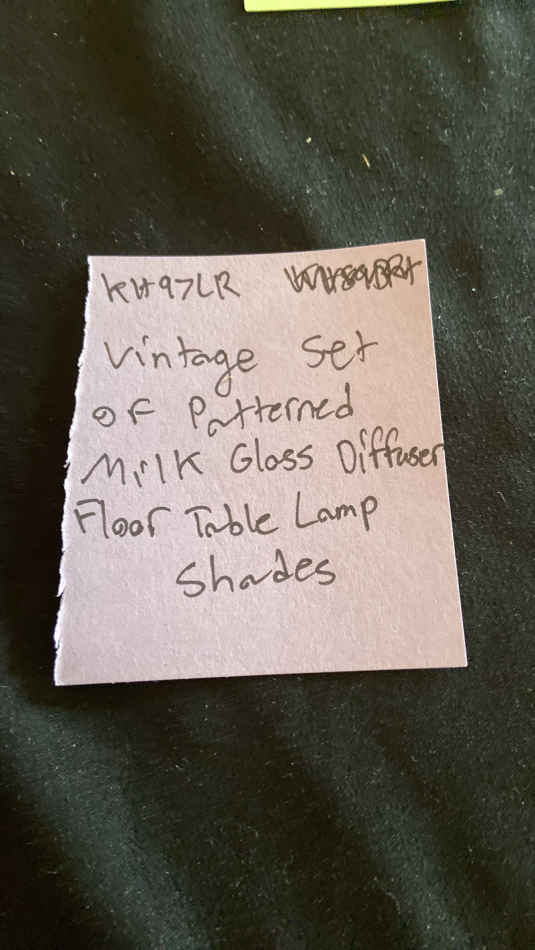 KH97LR
Vintage Set
of Patterned
Milk Glass Diffuser
Floor Table Lamp
Shades